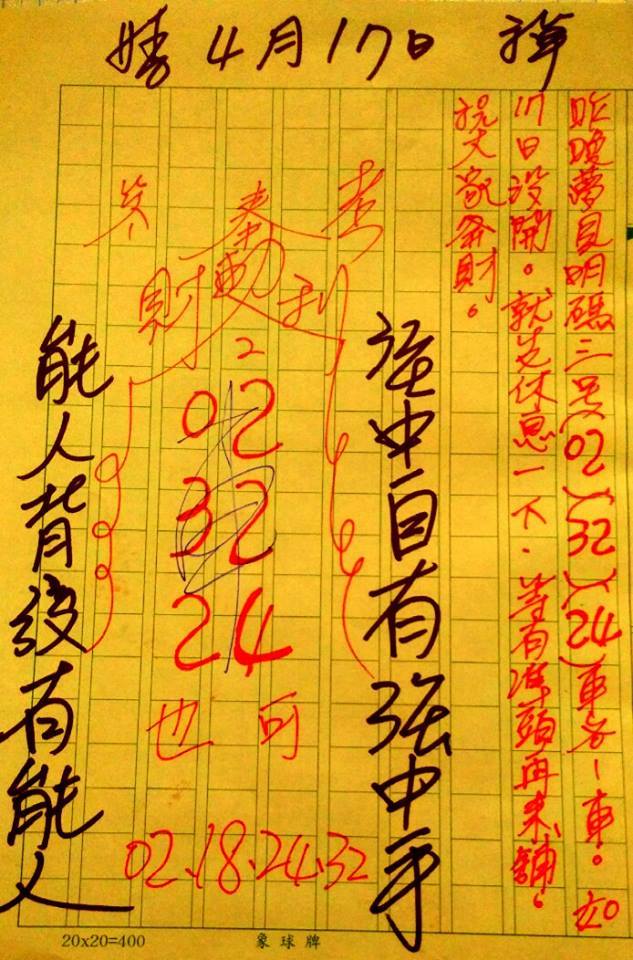 4月17日
昨晚夢見明碼三号(02)(32)(24)車各1車。如
17日沒開。就先休息一下.等有準頭再來舖。
祝大家發財。
強中自有強中手
財 利
2
02
32
24
也可
02.18.24.32
能人背後有能人
20x20=400 象球牌